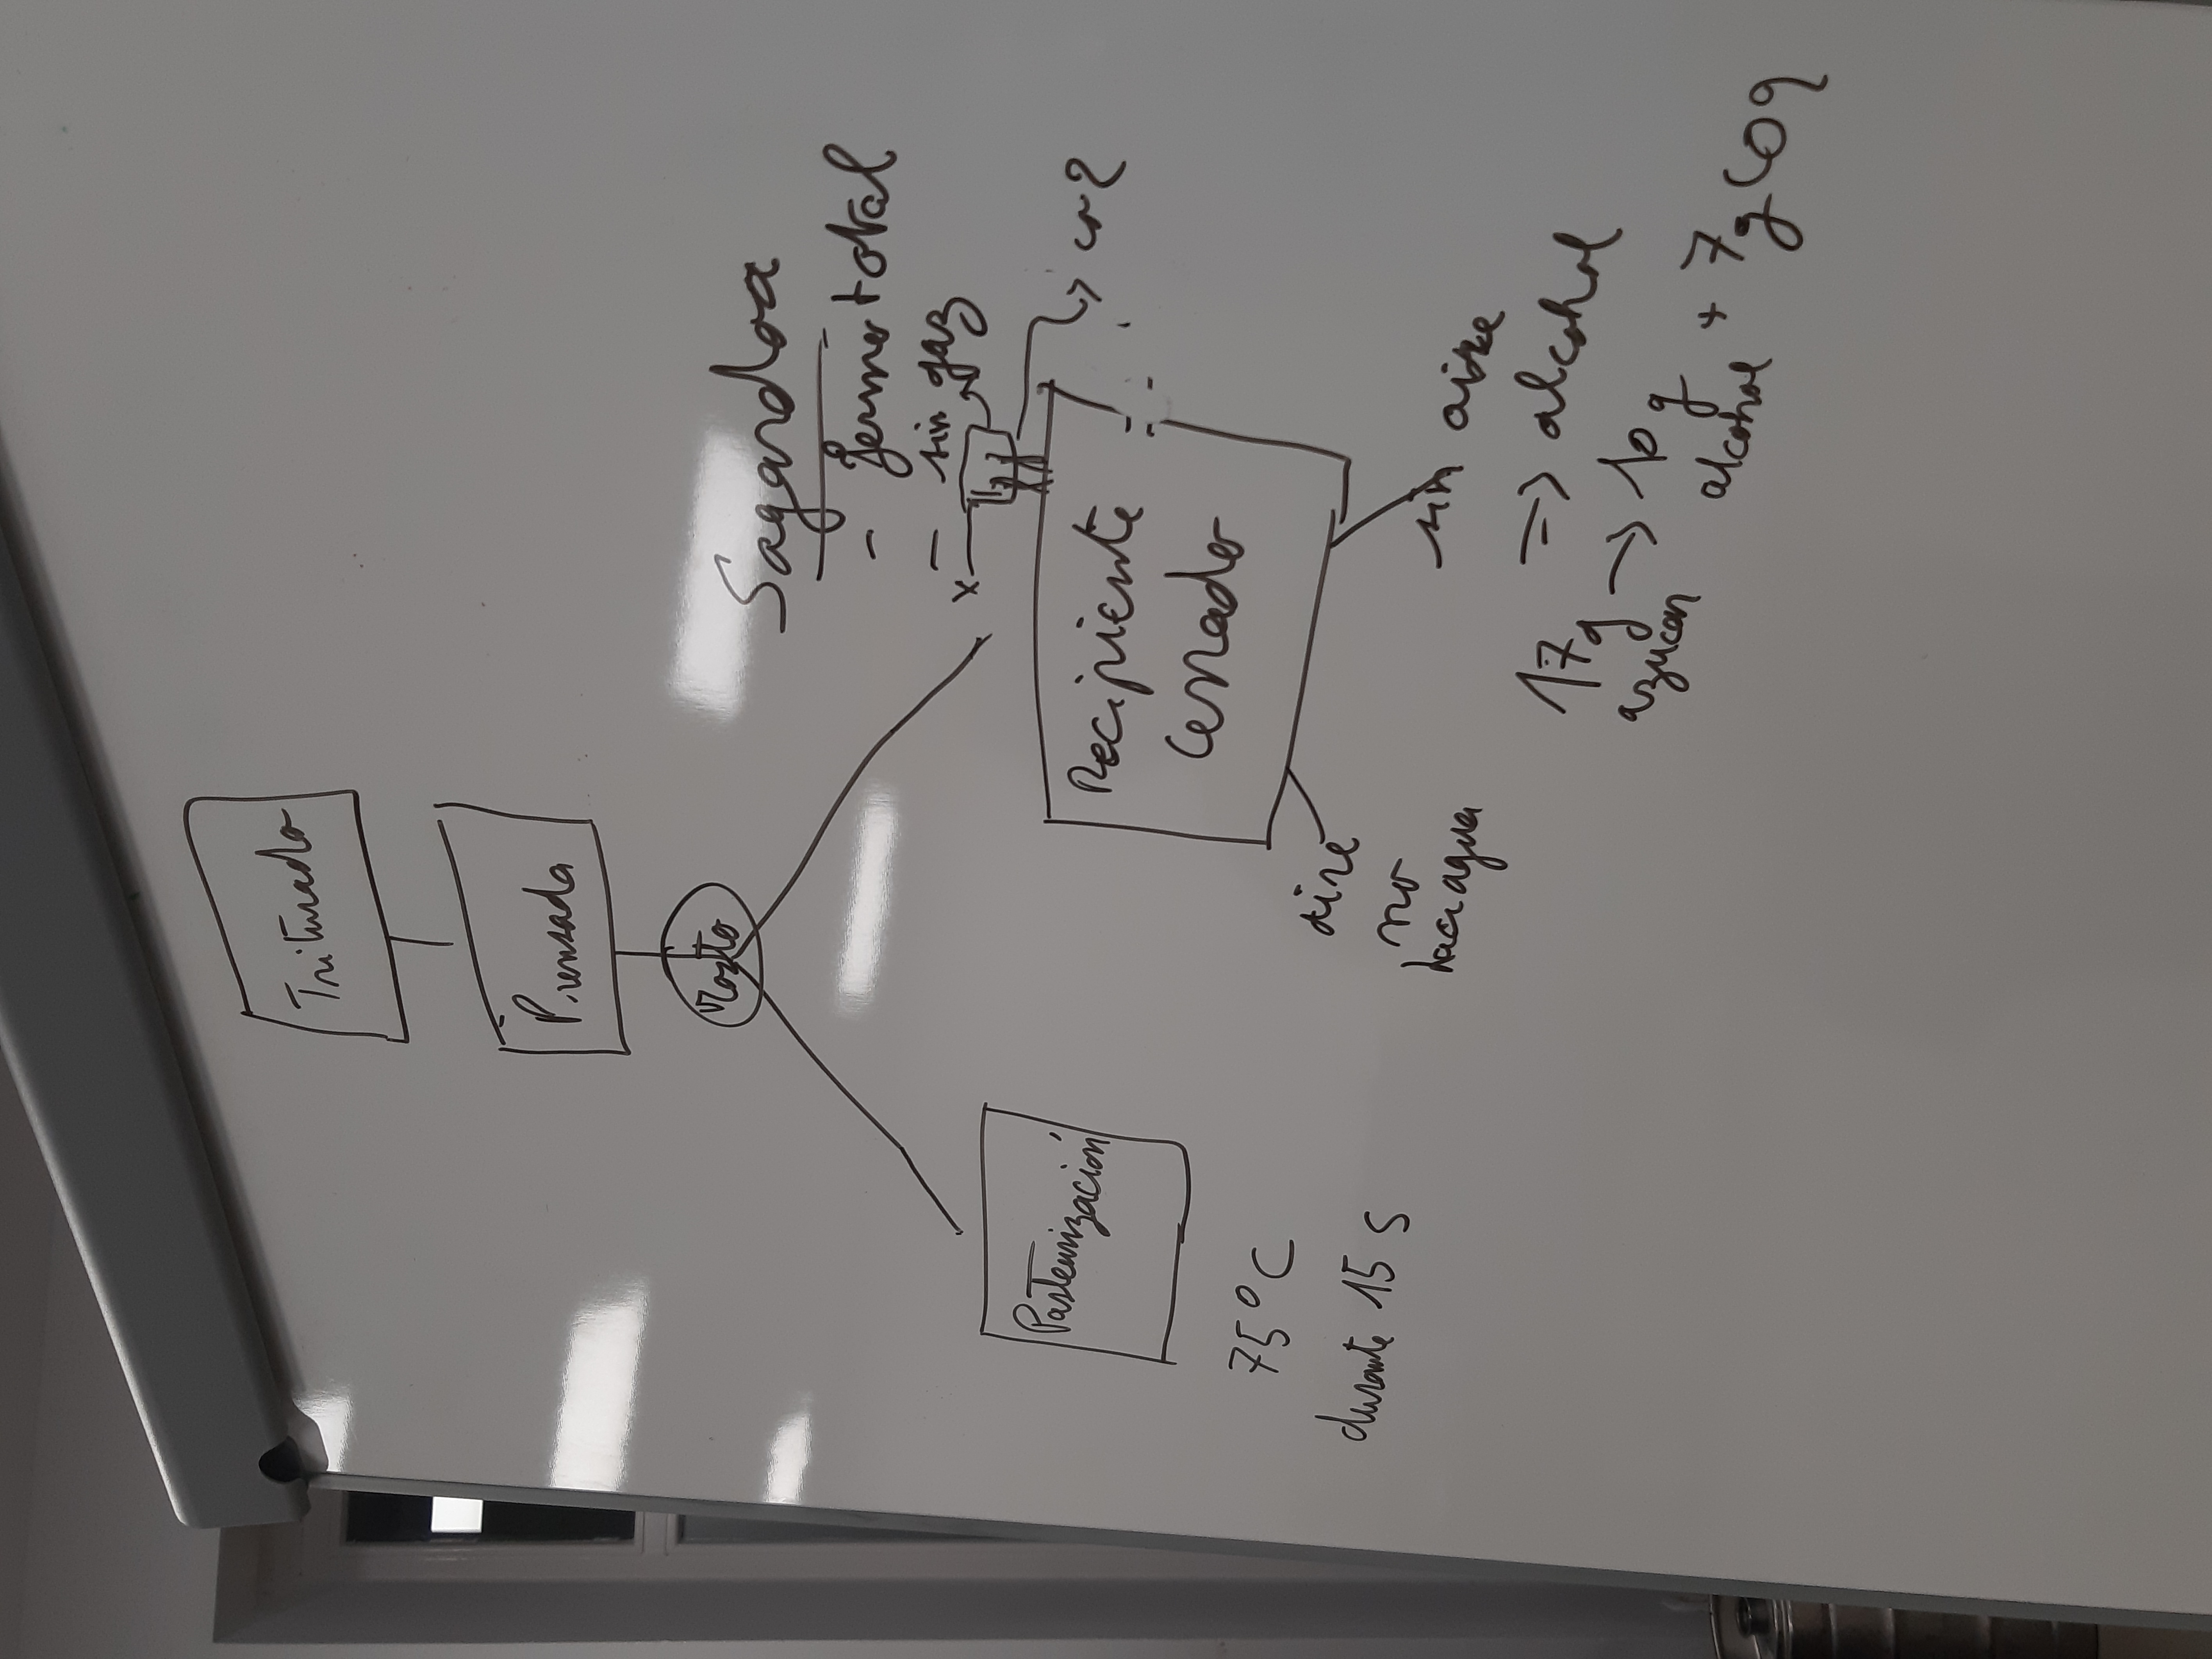 Triturado
Prensada
Mosto
Pasteurización
75°C
durante 15 s
Sagardoa
- ferme total
- sin gaz
x
co2
Recipiente
Cerrado
aire
no
hace agua
sin aire
=> alcohol
17g → 10 g + 7g CO2
azucar alcohol